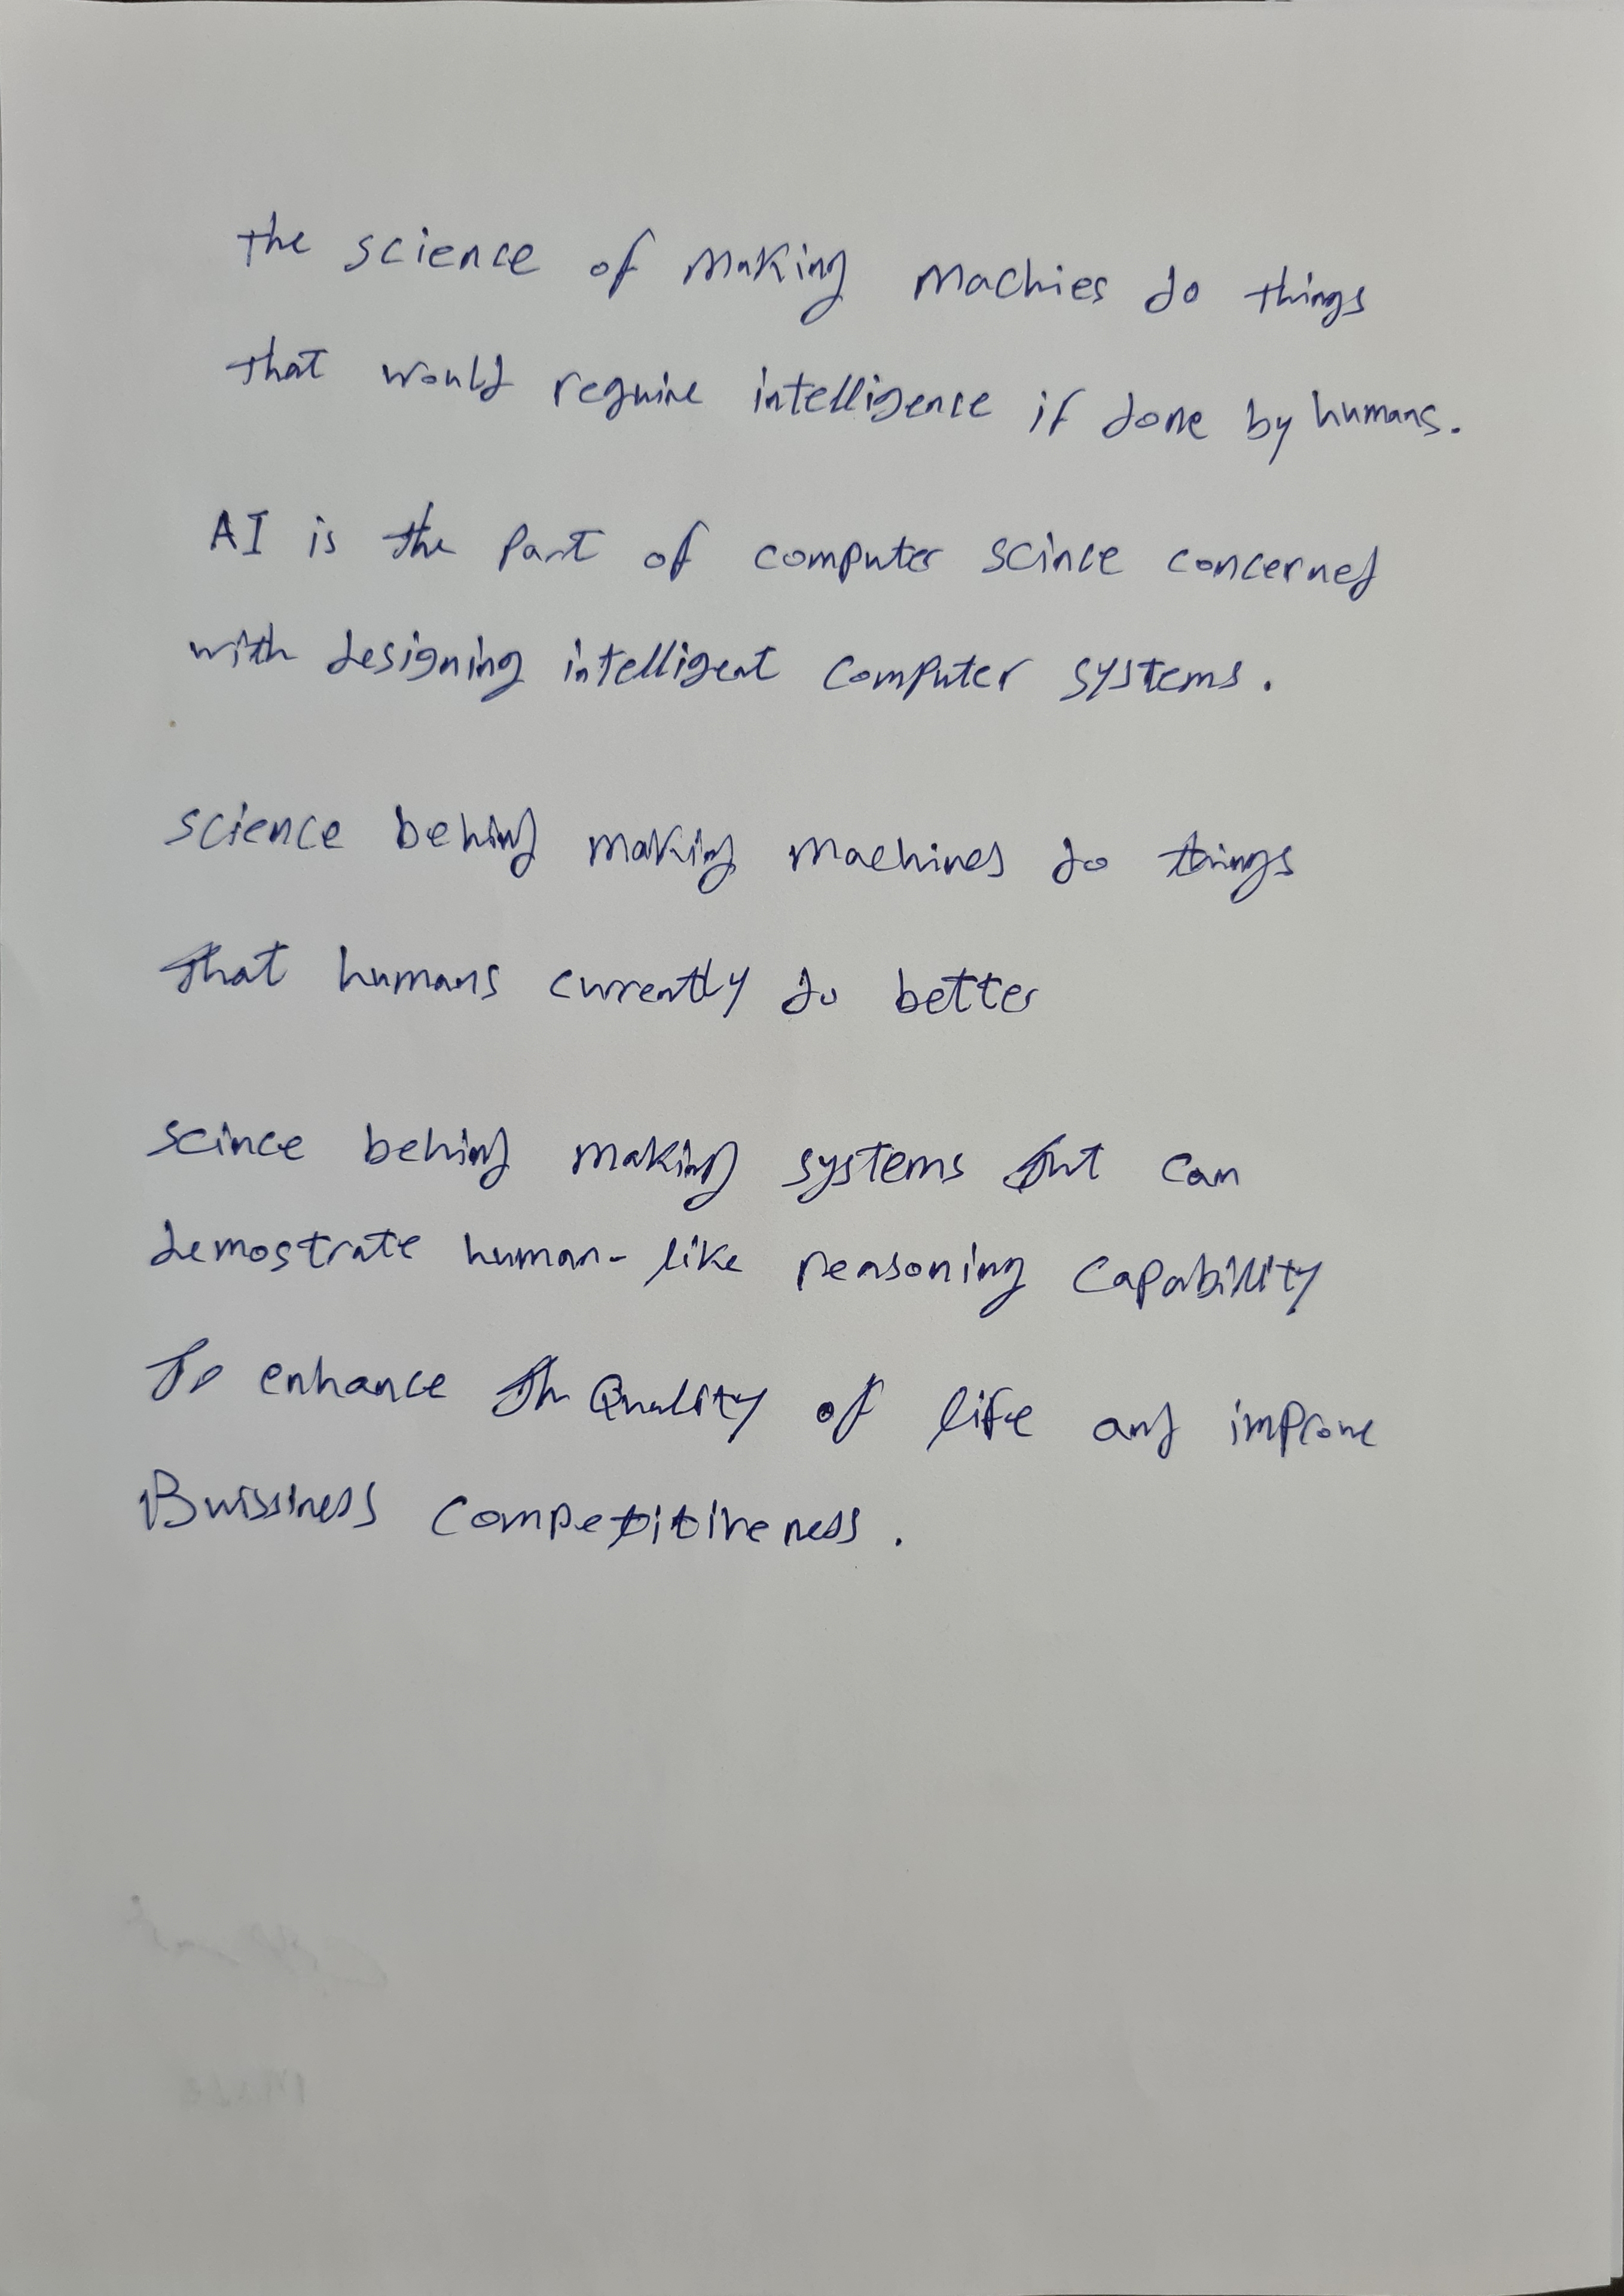 the science of making machies do things
that would require intelligence if done by humans.
AI is the part of computer scince concerned
with designing intelligent computer systems.
science behind making machines do things
that humans currently do better
scince behind making systems tht can
demostrate human-like reasoning capability
To enhance th Quality of life and improve
Buissiness competitiveness.